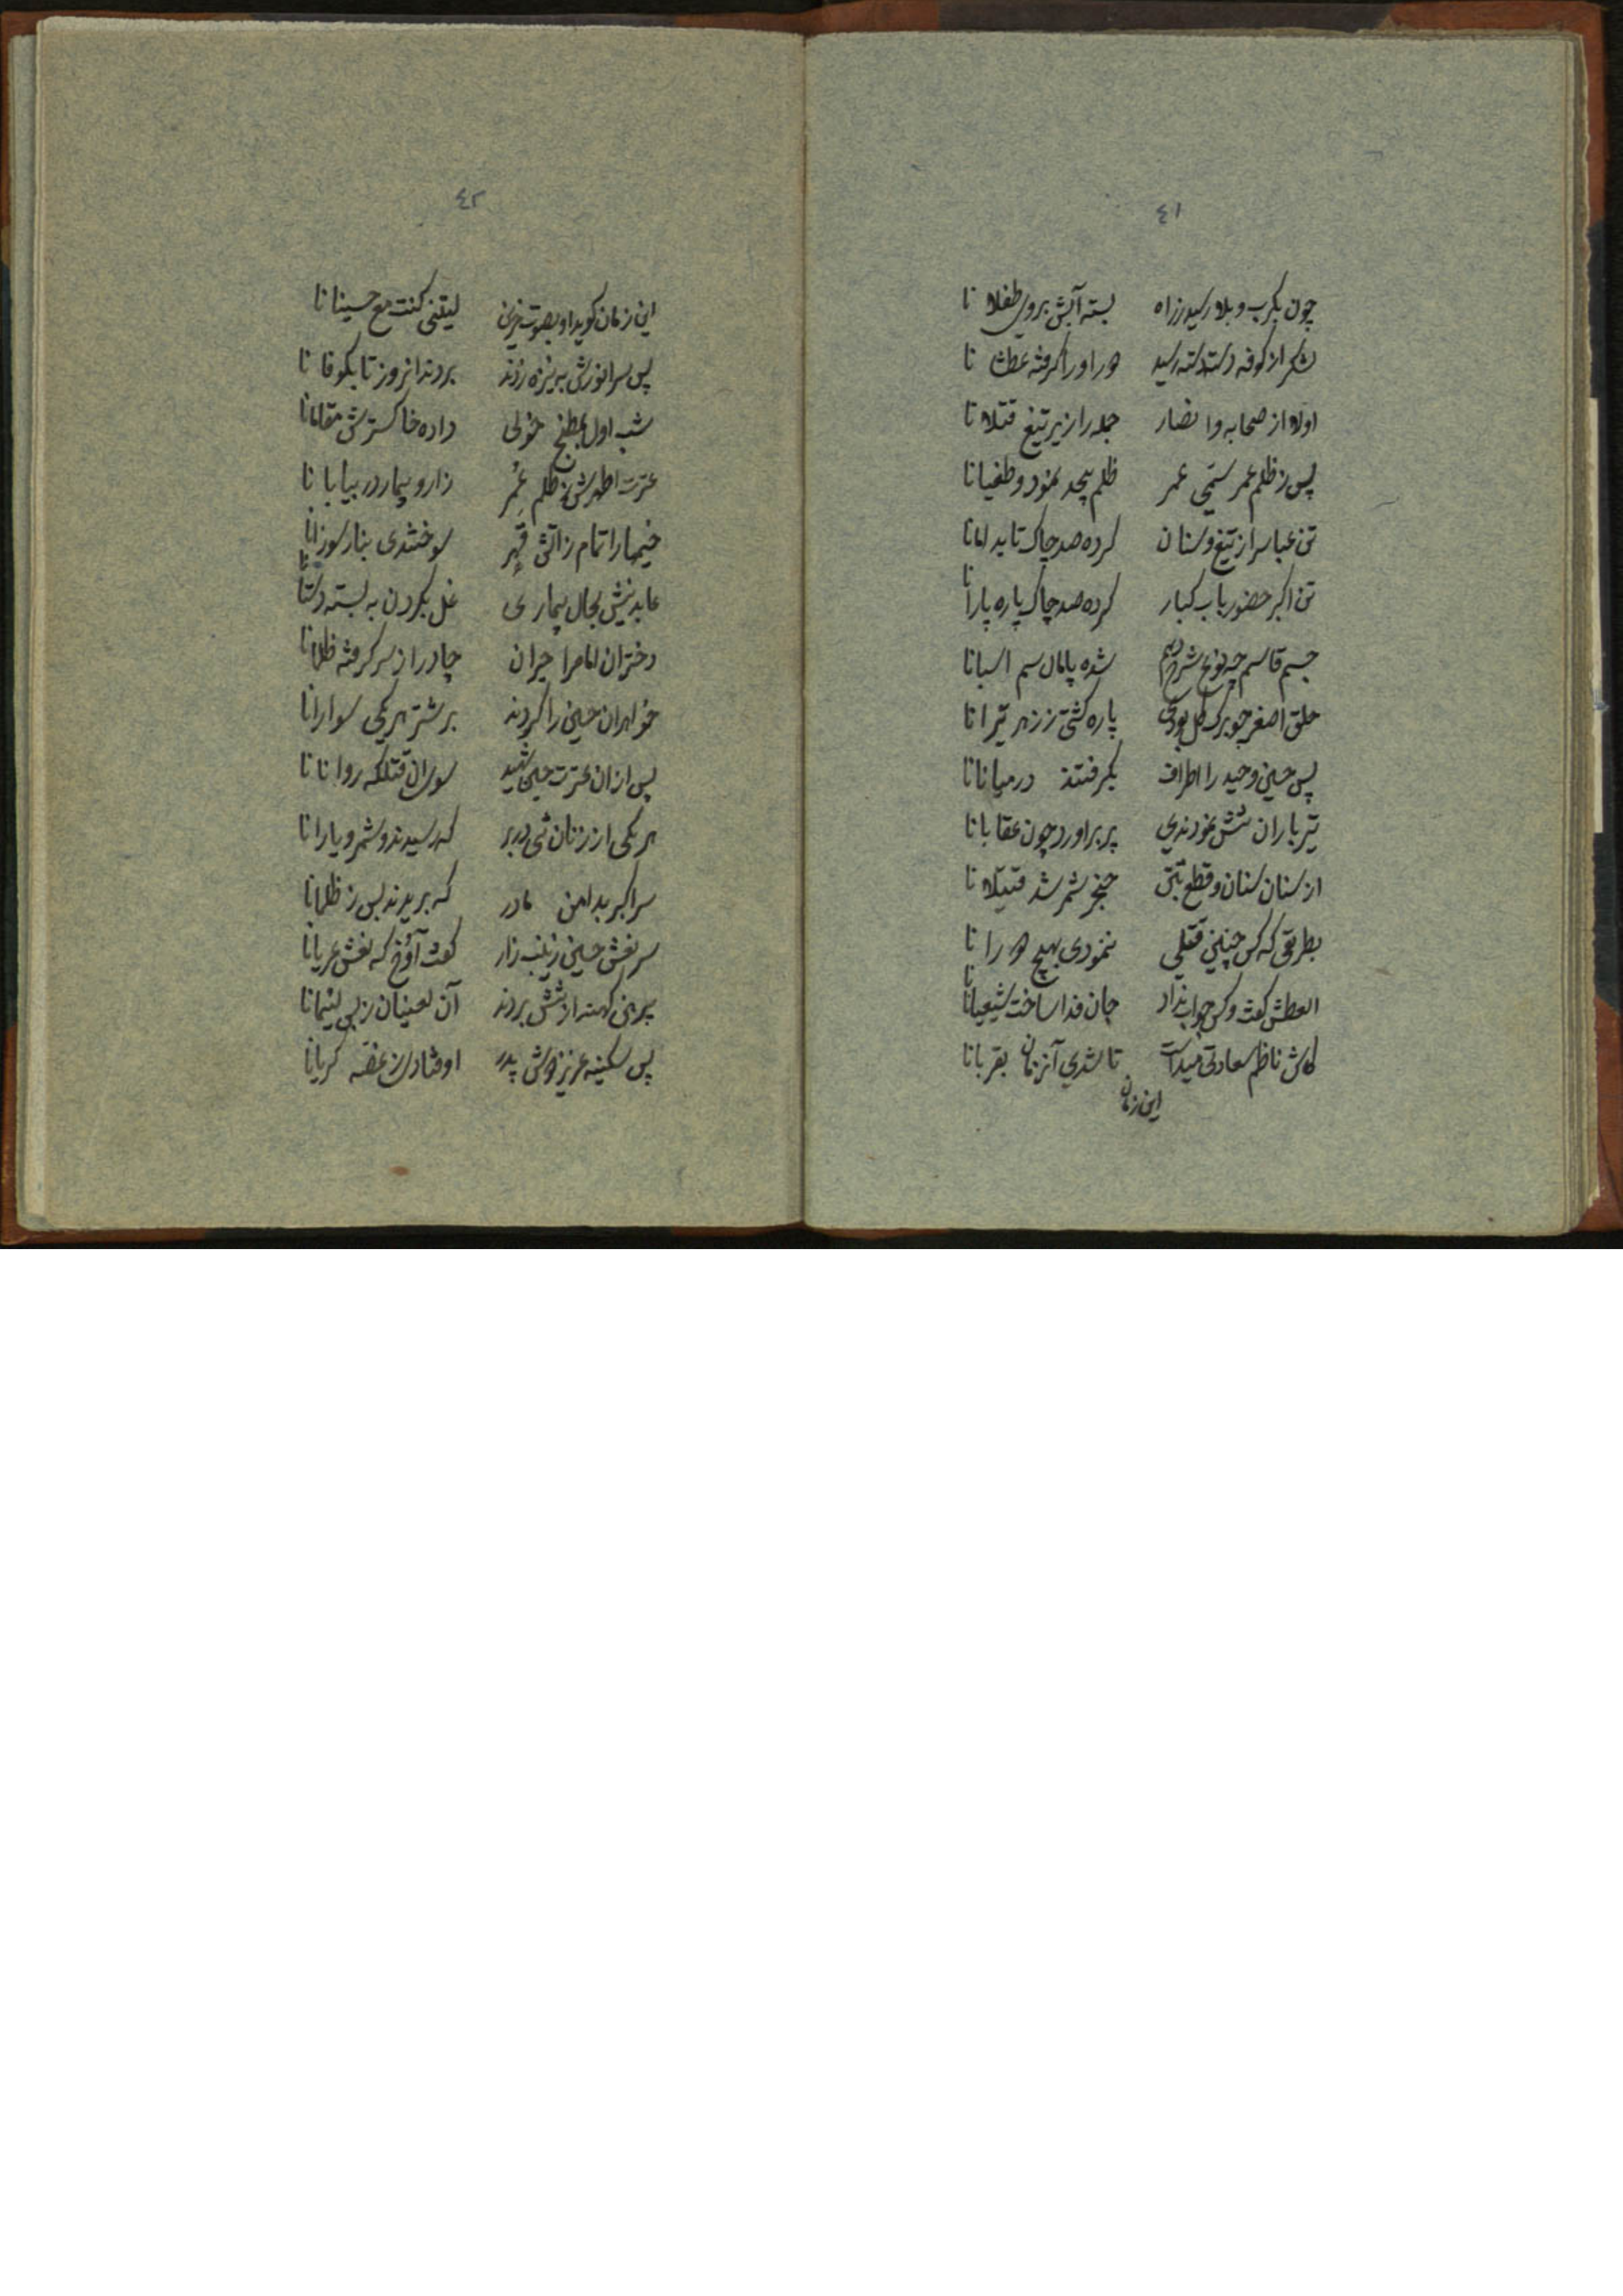 ٤١
چون بکرب و بلا رسید ز راه بسته آبش بروی طفلانا
لشکر از کوفه دسته دسته رسید دور او را گرفته عطشانا
اولا از صحابه و انصار جمله را زیر تیغ قتلانا
پس ز ظلم عمر سمی عمر ظلم بیحد نمود و طغیانا
تن عباس را ز تیغ و سنان کرده صد چاک تا بدامانا
تن اکبر حضور باب کبار کرده صد چاک پاره پارانا
جسم قاسم چه نوع شرح دهم شده پامال سم اسبانا
حلق اصغر چو برک کل بودی پاره کشتی ز زهر تیرانا
پس حسین وحید را اطراف بکرفتند در میانانا
تیر باران تنش نمودندی پر براورد چون عقابانا
از سنان سنان و قطع تنی خنجر شمر شد قتیلانا
بطریقی که کس چنین قتلی ننمودی بهیچ دورانا
العطش کفت و کس جواب نداد جان فدا ساخت شیعیانا
کاش ناظم سعادتی میداشت تا شدی آنزمان بقربانا
این زمان
٤٢
این زمان کوید او بصوت حزین لیتنی کنت مع حسینانا
پس سر انورش به نیزه زدند بردند انروز تا بکوفانا
شب اول بمطبخ خولی داده خاکسترش مقامانا
عترت اطهرش ز ظلم عمر زار و بیمار در بیابانا
خیمها را تمام ز آتش قهر سوختندی بنار سوزانا
عابدینش بحال بیماری غل بکردن به بسته دستانا
دختران امام را حیران چادر از سر کرفته ظلانا
خواهران حسین را کردند بر شتر هریکی سوارانا
پس از ان عترت حسین شهید سوی ان قتلکه روانانا
هر یکی از زنان شی دربر که رسیدند و شمر و یارانا
سر اکبر بدامن مادر که بریدند بس ز ظلمانا
سر نعش حسین زینب زار کفت آوخ که نعش عریانا
پیرهن کهنه از تنش بردند آن لعینان ز بی لئیمانا
پس سکینه عزیز دوش پدر اوفتادی ز غصه کریانا